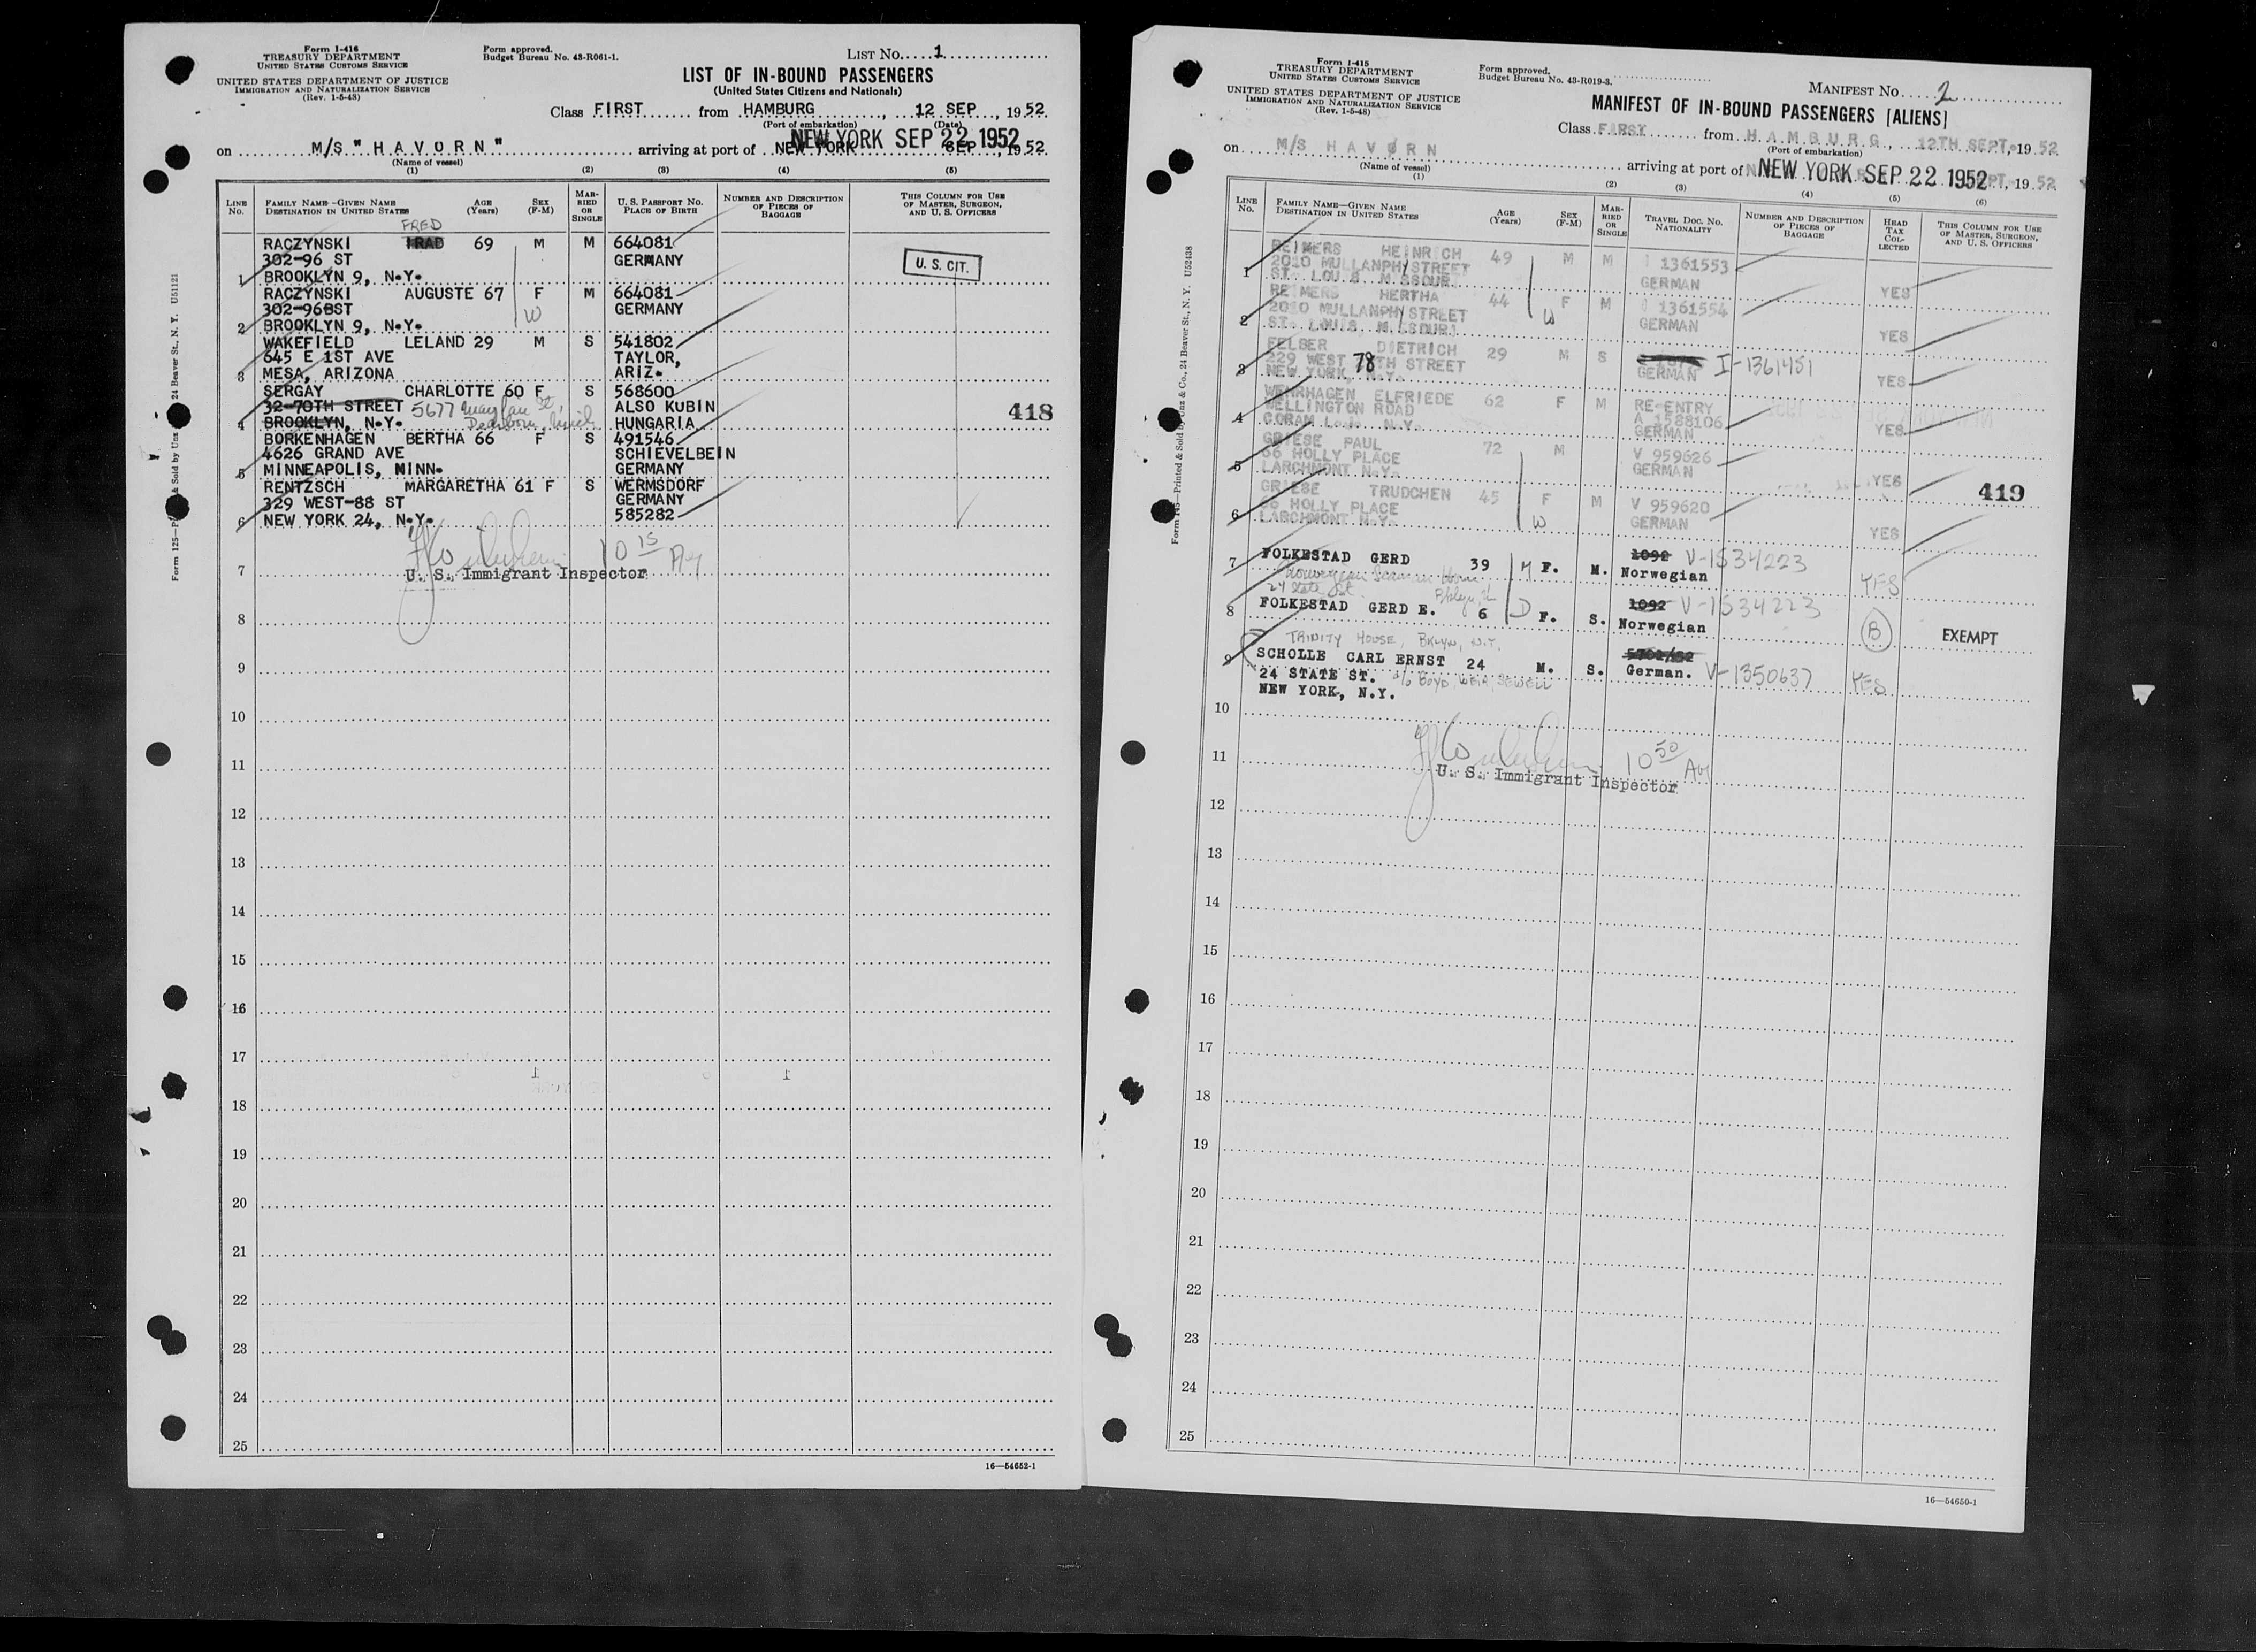 Form I-416
TREASURY DEPARTMENT
UNITED STATES CUSTOMS SERVICE
UNITED STATES DEPARTMENT OF JUSTICE
IMMIGRATION AND NATURALIZATION SERVICE
(Rev. 1-5-48)
Form approved.
Budget Bureau No. 43-R061-1.
LIST No. 1
LIST OF IN-BOUND PASSENGERS
(United States Citizens and Nationals)
Class FIRST from HAMBURG, 12 SEP, 19 52
(Port of embarkation) (Date)
NEW YORK SEP 22 1952
on M/S "HAVORN" arriving at port of NEW YORK SEP, 19 52
(Name of vessel)
(1) (2) (3) (4) (5)
LINE No. FAMILY NAME—GIVEN NAME DESTINATION IN UNITED STATES AGE (Years) SEX (F-M) MARRIED OR SINGLE U. S. PASSPORT No. PLACE OF BIRTH NUMBER AND DESCRIPTION OF PIECES OF BAGGAGE THIS COLUMN FOR USE OF MASTER, SURGEON, AND U. S. OFFICERS
FRED
RACZYNSKI 69 M M 664081
302-96 ST GERMANY
1 BROOKLYN 9, N.Y.
U. S. CIT.
RACZYNSKI AUGUSTE 67 F M 664081
302-96 ST W GERMANY
2 BROOKLYN 9, N.Y.
WAKEFIELD LELAND 29 M S 541802
645 E 1ST AVE TAYLOR,
3 MESA, ARIZONA ARIZ.
SERGAY CHARLOTTE 60 F S 568600
32-70TH STREET 5677 ALSO KUBIN
4 BROOKLYN, N.Y. Dearborn, Mich HUNGARIA
418
BORKENHAGEN BERTHA 66 F S 491546
4626 GRAND AVE SCHIEVELBEIN
5 MINNEAPOLIS, MINN. GERMANY
RENTZSCH MARGARETHA 61 F S WERMSDORF
329 WEST-88 ST GERMANY
6 NEW YORK 24, N.Y. 585282
10 15 AM
7 U. S. Immigrant Inspector
8
9
10
11
12
13
14
15
16
17
18
19
20
21
22
23
24
25
16—54652-1
Form I-415
TREASURY DEPARTMENT
UNITED STATES CUSTOMS SERVICE
UNITED STATES DEPARTMENT OF JUSTICE
IMMIGRATION AND NATURALIZATION SERVICE
(Rev. 1-5-48)
Form approved.
Budget Bureau No. 43-R019-3.
MANIFEST No. 2
MANIFEST OF IN-BOUND PASSENGERS [ALIENS]
Class FIRST from HAMBURG, 12TH SEPT. 19 52
(Port of embarkation)
on M/S HAVØRN arriving at port of NEW YORK SEP 22 1952 SEPT, 19 52
(Name of vessel)
(1) (2) (3) (4) (5) (6)
LINE No. FAMILY NAME—GIVEN NAME DESTINATION IN UNITED STATES AGE (Years) SEX (F-M) MARRIED OR SINGLE TRAVEL DOC. No. NATIONALITY NUMBER AND DESCRIPTION OF PIECES OF BAGGAGE HEAD TAX COLLECTED THIS COLUMN FOR USE OF MASTER, SURGEON, AND U. S. OFFICERS
REIMERS HEINRICH 49 M M I 1361553
2010 MULLANPHY STREET
1 ST. LOUIS MISSOURI GERMAN YES
REIMERS HERTHA 44 F M I 1361554
2010 MULLANPHY STREET W GERMAN
2 ST. LOUIS MISSOURI YES
FELSER DIETRICH 29 M S I-1361451
229 WEST 78TH STREET GERMAN
3 NEW YORK, N.Y. YES
WEHRHAGEN ELFRIEDE 62 F M RE-ENTRY
WELLINGTON ROAD A 1588106
4 CORAM N.Y. GERMAN YES
GRIESE PAUL 72 M V 959626
66 HOLLY PLACE GERMAN
5 LARCHMONT N.Y. YES
419
GRIESE TRUDCHEN 45 F M V 959620
66 HOLLY PLACE GERMAN
6 LARCHMONT N.Y. W YES
7 FOLKESTAD GERD 39 M F. M. 1092 V-1534223
Norwegian YES
Norwegian Seamen Home
24 State St.
8 FOLKESTAD GERD E. 6 D F. S. 1092 V-1534223
Norwegian B EXEMPT
TRINITY HOUSE, BKLYN, N.Y.
9 SCHOLLE CARL ERNST 24 M. S. German. V-1350637 YES
24 STATE ST. c/o BOYD, WEIR, SEWELL
NEW YORK, N.Y.
10
10 50 AM
11 U. S. Immigrant Inspector
12
13
14
15
16
17
18
19
20
21
22
23
24
25
16—54650-1